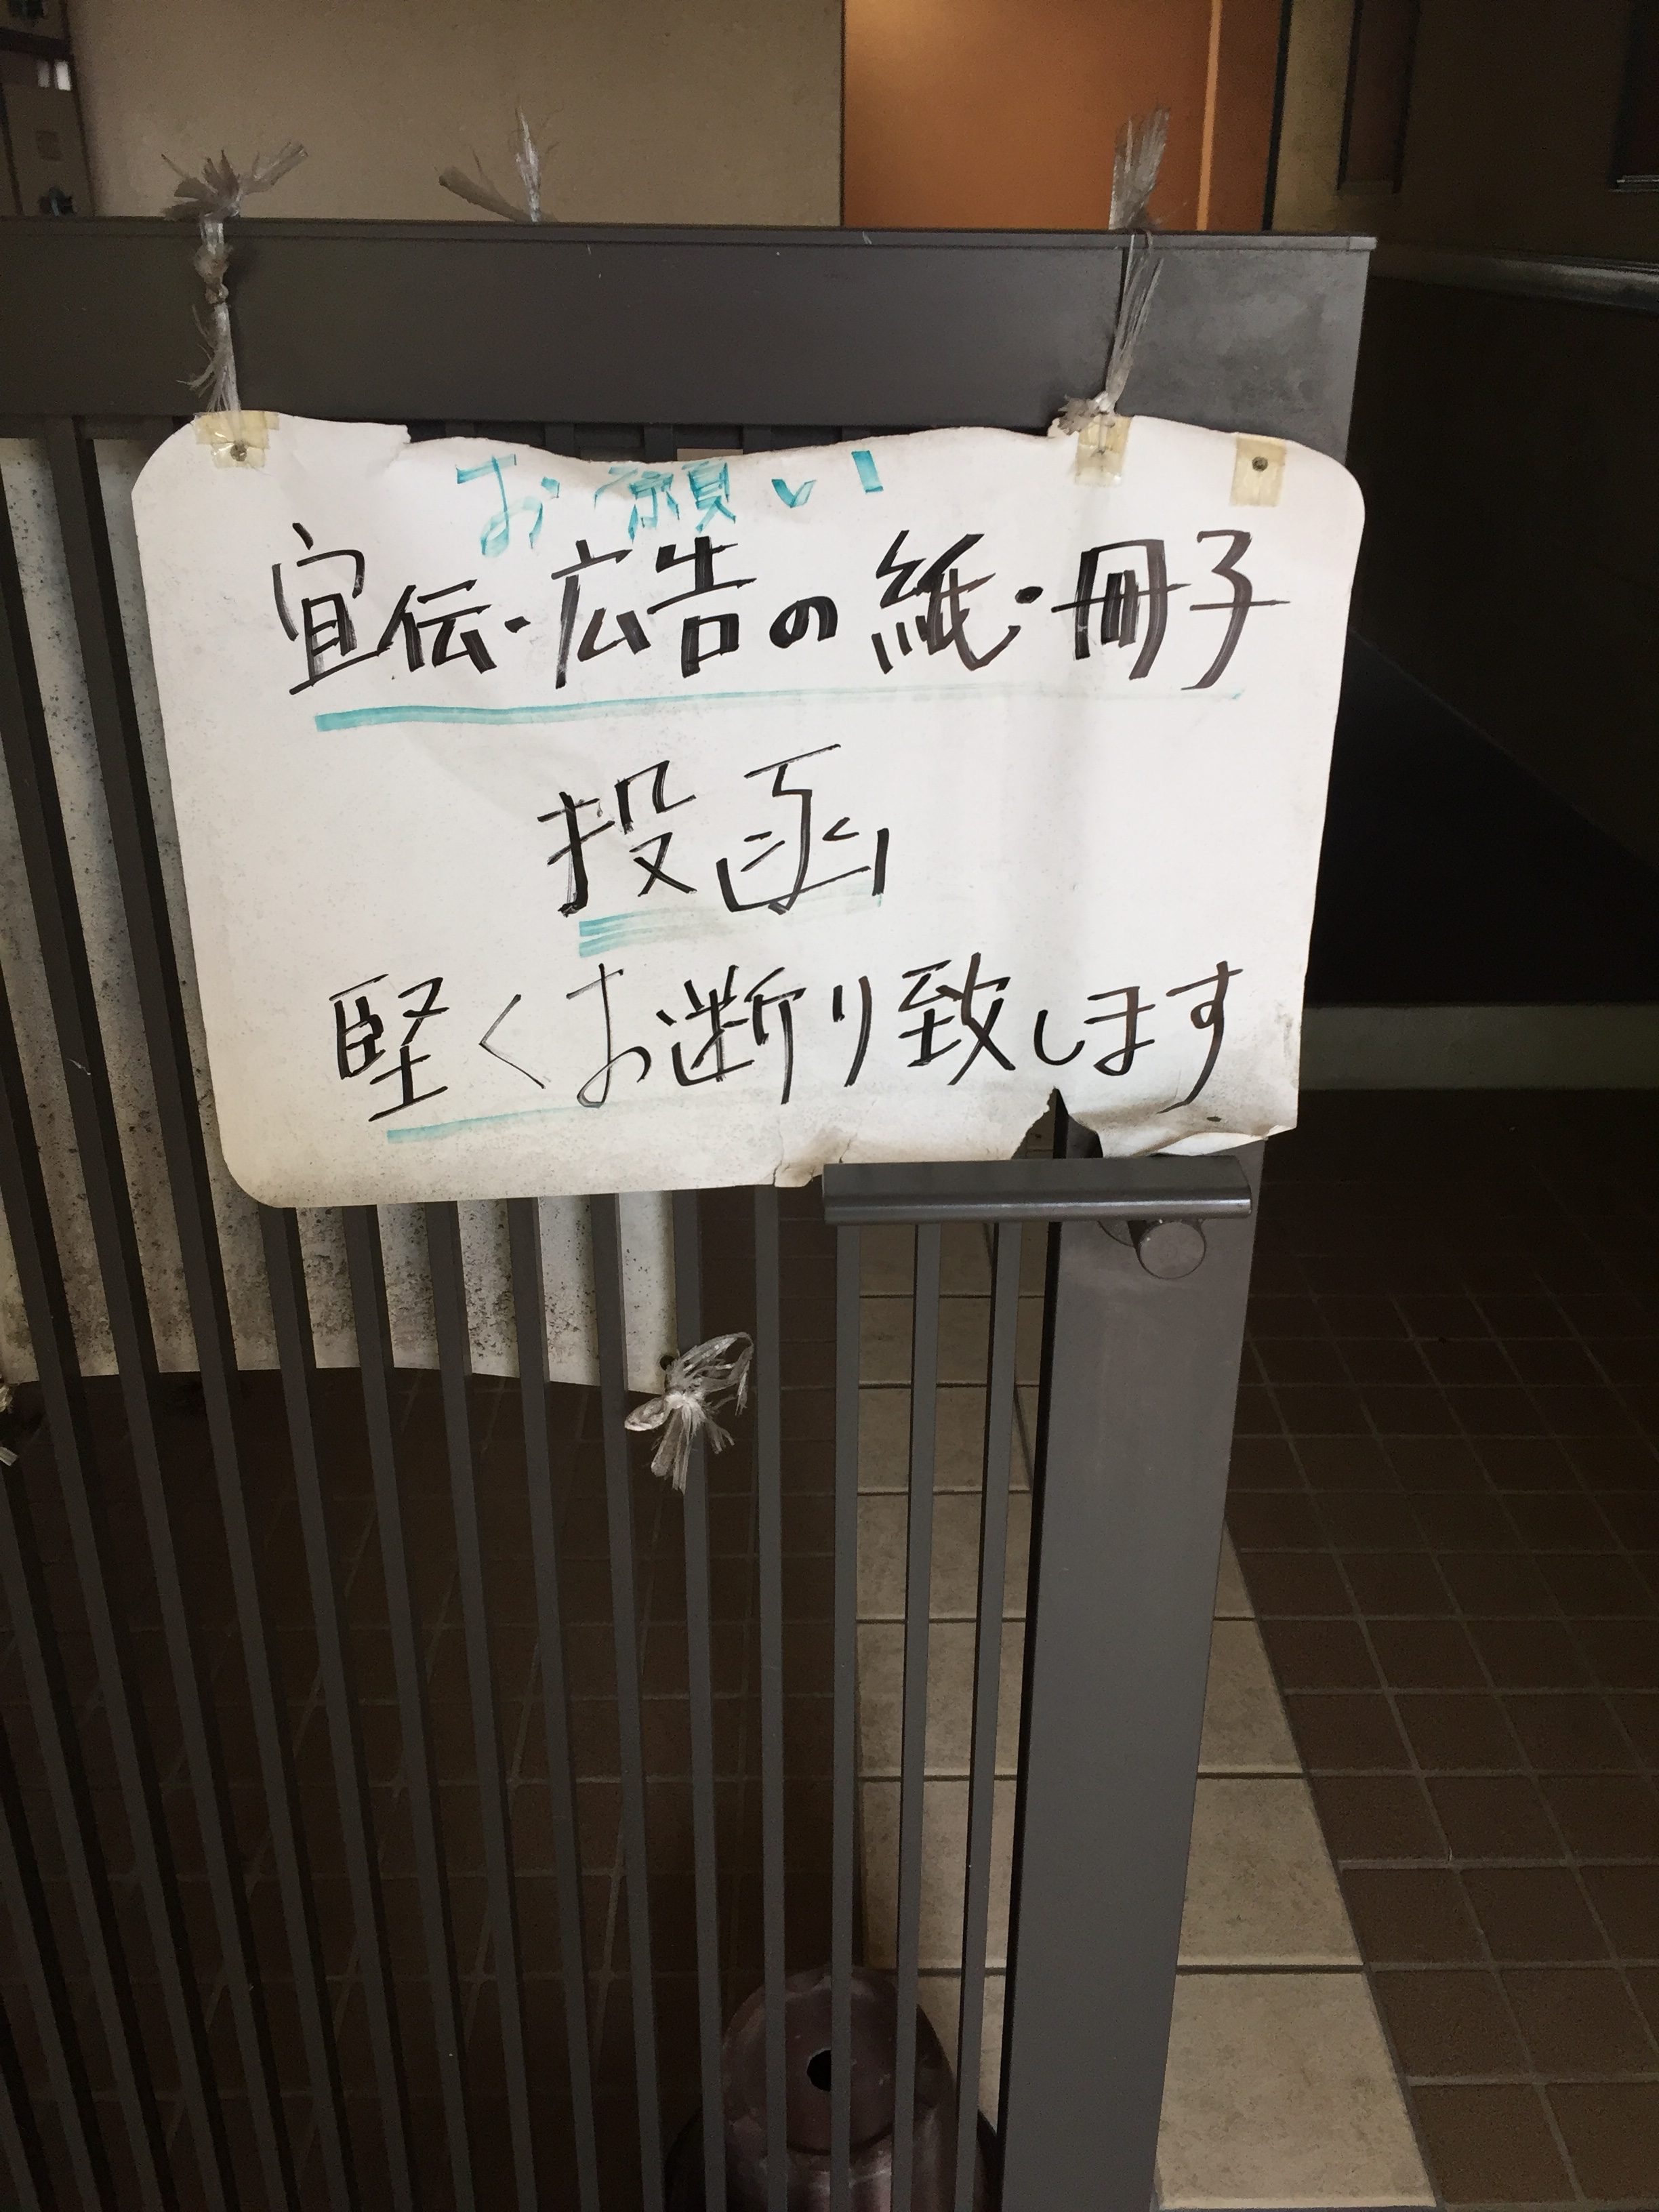 お願い
宣伝・広告の紙・冊子
投函
堅くお断り致します